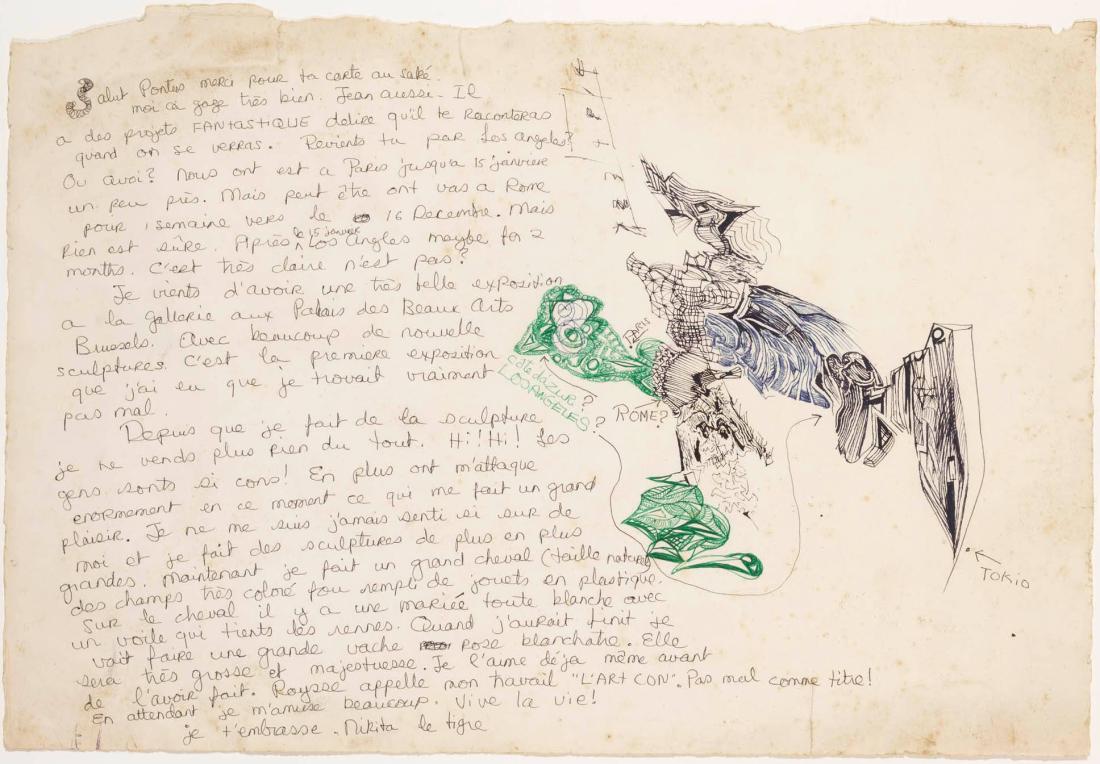 Salut Pontus merci pour ta carte au saké.
moi ça gaze très bien. Jean aussi. Il
a des projets FANTASTIQUE delire qu'il te Raconteras
quand on se verras. Revients tu par Los Angeles?
Ou quoi? Nous ont est a Paris jusqu'a 15 janviere
un peu près. Mais peut être ont vas a Rome
pour 1 semaine vers le 16 Decembre. Mais
Rien est sûre. Après le 15 janvier Los Angles maybe for 2
months. C'est très claire n'est pas?
Je vients d'avoir une très belle exposition
a la gallerie aux Palais des Beaux Arts
Bruesels. Avec beaucoup de nouvelle
sculptures. C'est la premiere exposition
que j'ai eu que je trouvait vraiment
pas mal.
Depuis que je fait de la sculpture
je ne vends plus rien du tout. Hi! Hi! Les
gens sonts si cons! En plus ont m'attaque
enormement en ce moment ce qui me fait un grand
plaisir. Je ne me suis jamais senti si sur de
moi et je fait des sculptures de plus en plus
grandes. Maintenant je fait un grand cheval (taille nature)
des champs très coloré fou rempli de jouets en plastique.
Sur le cheval il y a une mariée toute blanche avec
un voile qui tients les rennes. Quand j'aurait finit je
vait faire une grande vache rose blanchatre. Elle
sera très grosse et majestuesse. Je l'aime déja même avant
de l'avoir fait. Raysse appelle mon travail "L'ART CON". Pas mal comme titre!
En attendant je m'amuse beaucoup. Vive la vie!
je t'embrasse. Nikita le tigre
PARIS
côte dazur?
LOS ANGELES?
ROME?
?
TOKIO